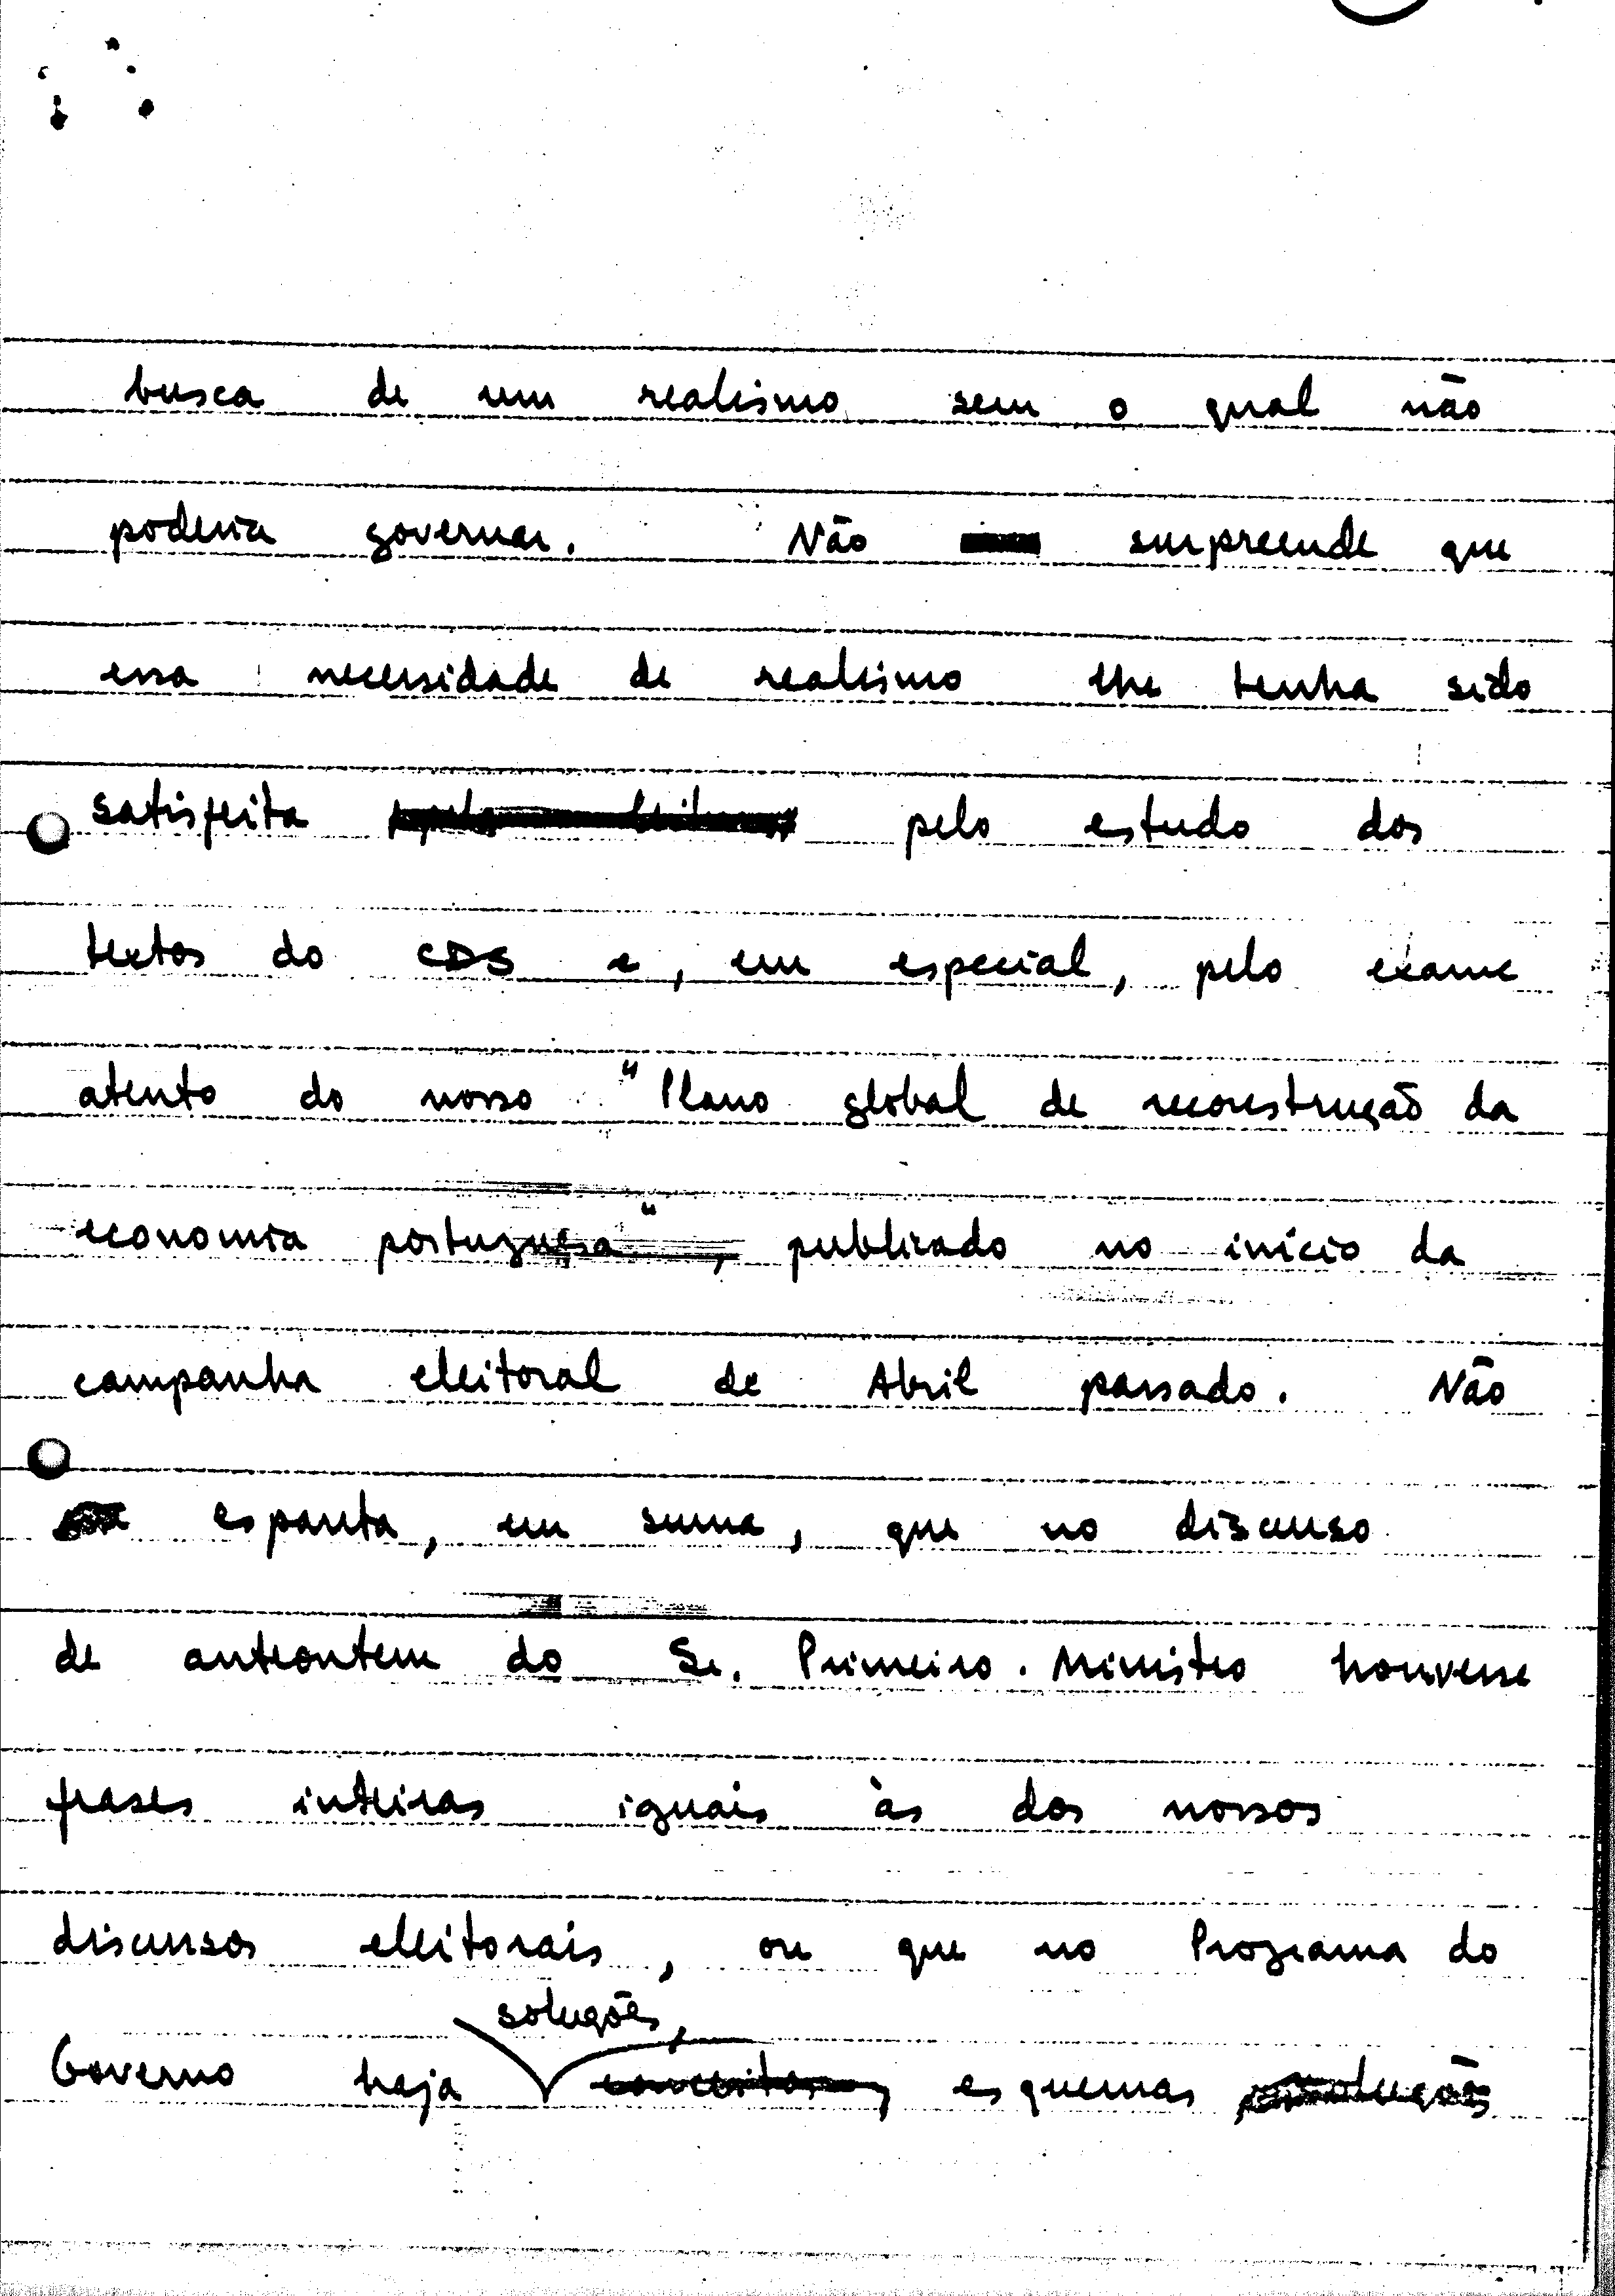 busca de um realismo sem o qual não
poderia governar. Não surpreende que
essa necessidade de realismo lhe tenha sido
satisfeita pelo estudo dos
textos do CDS e, em especial, pelo exame
atento do nosso "Plano global de reconstrução da
economia portuguesa", publicado no início da
campanha eleitoral de Abril passado. Não
espanta, em suma, que no discurso
de anteontem do Sr. Primeiro-Ministro houvesse
frases inteiras iguais às dos nossos
discursos eleitorais, ou que no Programa do
soluções,
Governo haja esquemas